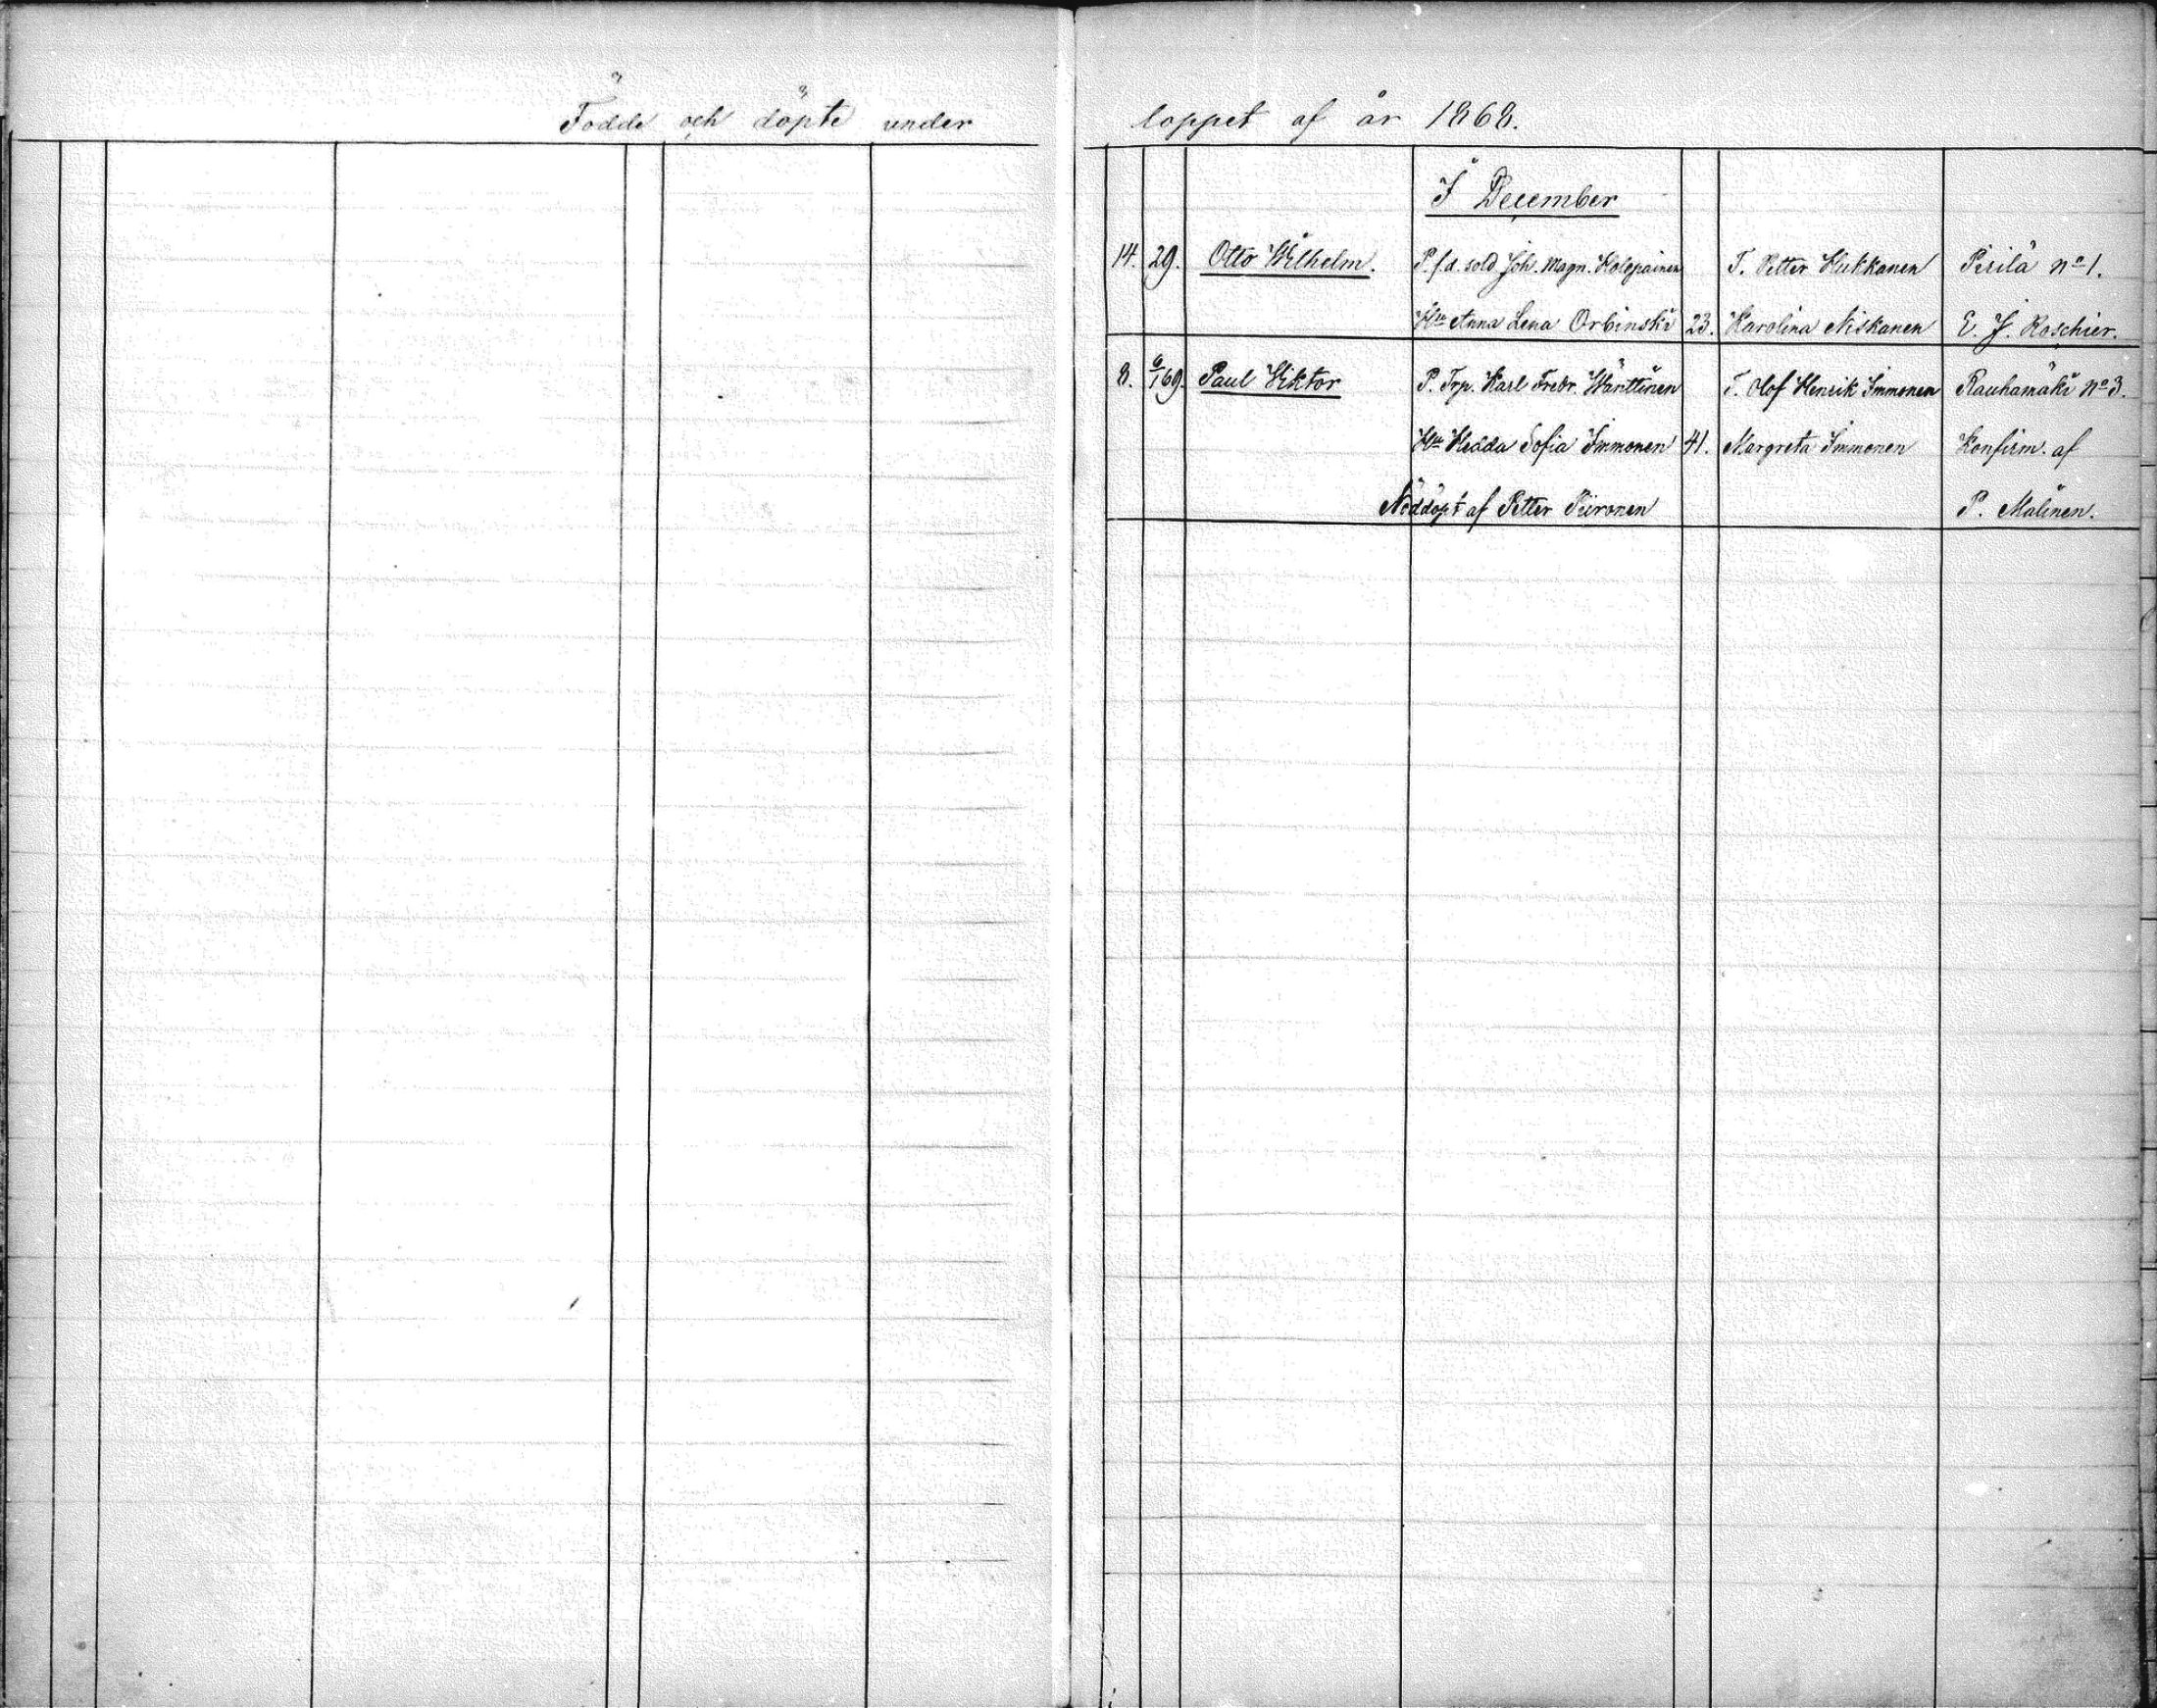 Födde och döpte under loppet af år 1868.
I December
14. 29. Otto Wilhelm. P. f.d. sold. Joh. Magn. Holopainen T. Petter Kukkonen Pirilä No 1.
Hu Anna Lena Orbinski 23. Karolina Niskanen E. J. Roschier.
8. 6/1 69. Paul Viktor P. Trp. Karl Fredr. Wänttinen T. Olof Henrik Immonen Rauhamäki No 3.
Hu Hedda Sofia Immonen 41. Margreta Immonen Konfirm. af
Nöddöpt af Petter Piironen P. Malinen.